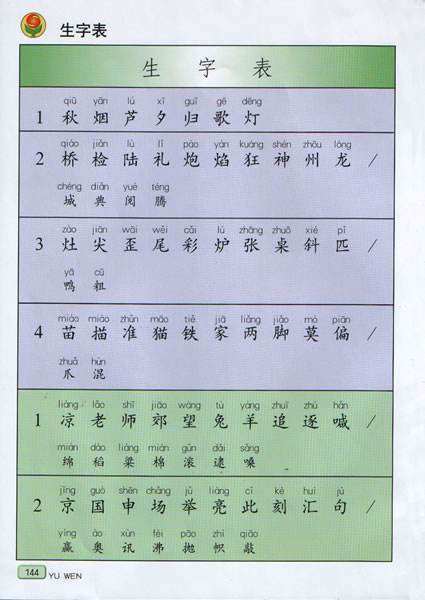 生字表
生 字 表
qiū yān lú xī guī gē dēng
1 秋 烟 芦 夕 归 歌 灯
qiáo jiǎn lù lǐ pào yàn kuáng shén zhōu lóng
2 桥 检 陆 礼 炮 焰 狂 神 州 龙 /
chéng diǎn yuè téng
城 典 阅 腾
zào jiān wāi wěi cǎi lú zhāng zhuō xié pǐ
3 灶 尖 歪 尾 彩 炉 张 桌 斜 匹 /
yā cū
鸭 粗
miáo miáo zhǔn māo tiě jiā liǎng jiǎo mò piān
4 苗 描 准 猫 铁 家 两 脚 莫 偏 /
zhuǎ hùn
爪 混
liáng lǎo shī jiāo wàng tù yáng zhuī zhú hǎn
1 凉 老 师 郊 望 兔 羊 追 逐 喊 /
mián dào liáng mián gǔn dǎi sǎng
绵 稻 粱 棉 滚 逮 嗓
jīng guó shēn chǎng jǔ liàng cǐ kè huì jù
2 京 国 申 场 举 亮 此 刻 汇 句 /
yíng ào xùn fèi pāo zhì qiāo
赢 奥 讯 沸 抛 帜 敲
144 YU WEN